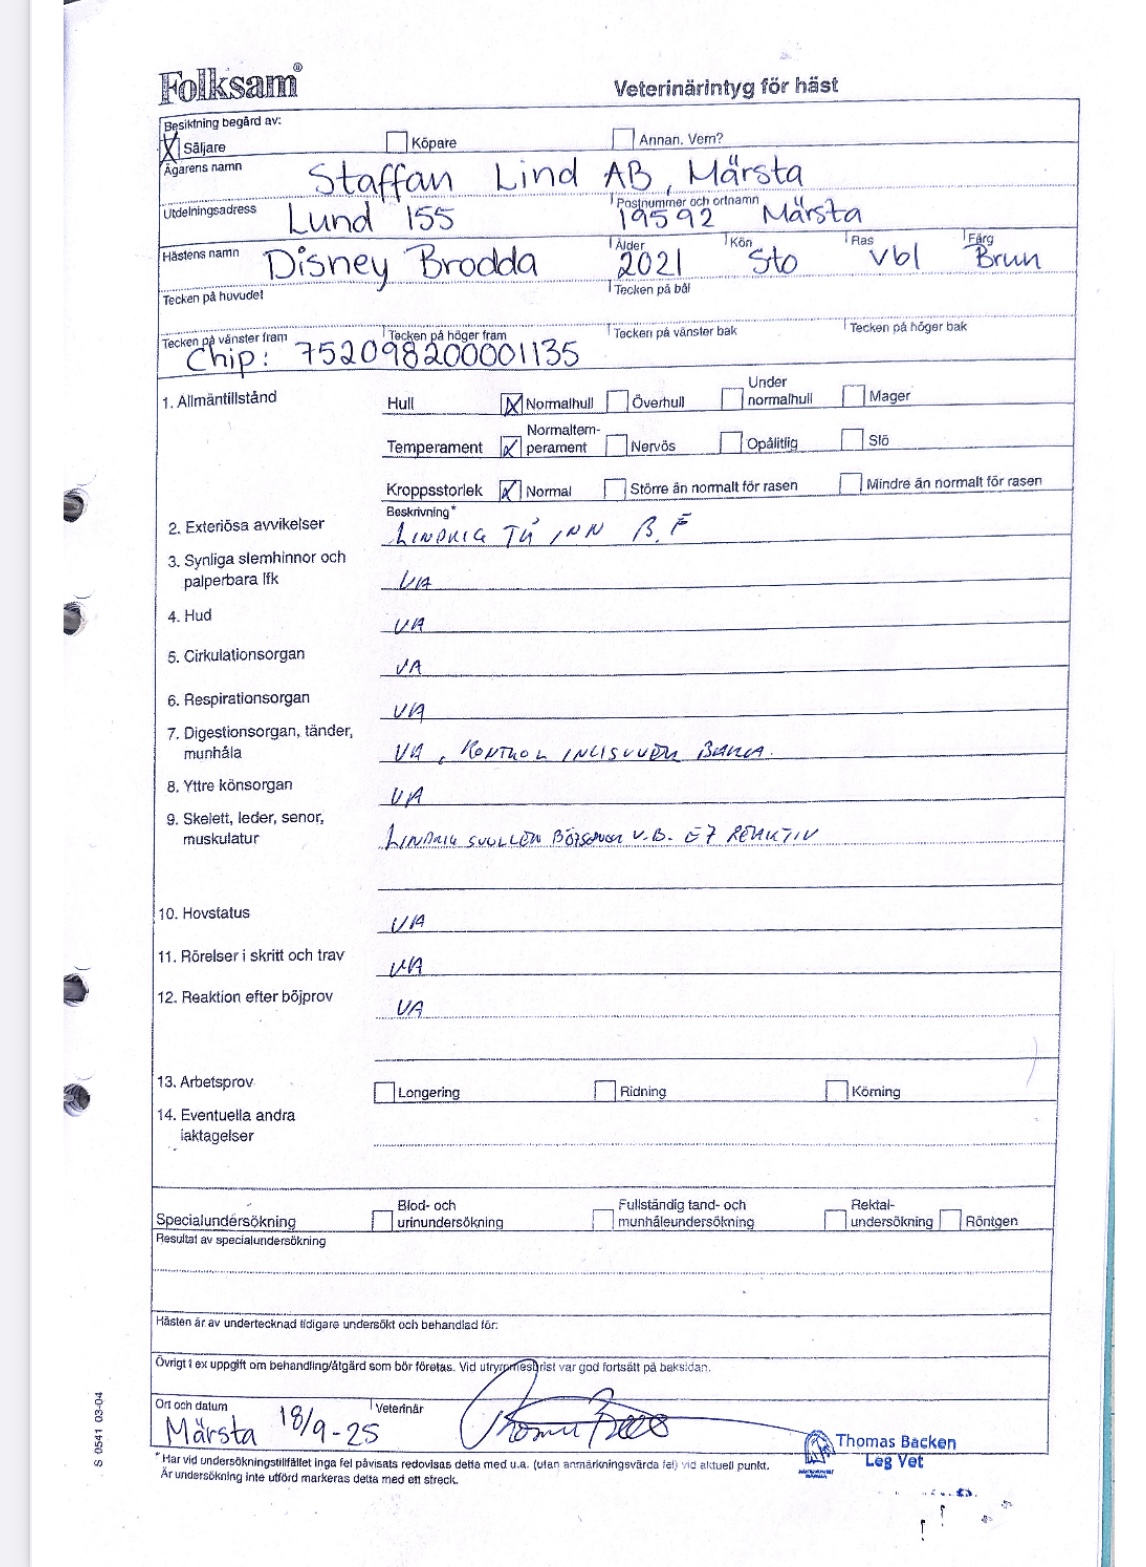 Folksam®
Veterinärintyg för häst
Besiktning begärd av:
X Säljare Köpare Annan. Vem?
Ägarens namn Staffan Lind AB, Märsta
Utdelningsadress Lund 155 Postnummer och ortnamn 19592 Märsta
Hästens namn Disney Brodda Ålder 2021 Kön Sto Ras vbl Färg Brun
Tecken på huvudet Tecken på bål
Tecken på vänster fram Tecken på höger fram Tecken på vänster bak Tecken på höger bak
Chip: 752098200001135
1. Allmäntillstånd Hull X Normalhull Överhull Under normalhull Mager
Temperament X Normaltem-perament Nervös Opålitlig Slö
Kroppsstorlek X Normal Större än normalt för rasen Mindre än normalt för rasen
Beskrivning*
2. Exteriösa avvikelser LINDRIG TÅ INN B.F
3. Synliga slemhinnor och
palperbara lfk UA
4. Hud UA
5. Cirkulationsorgan UA
6. Respirationsorgan UA
7. Digestionsorgan, tänder,
munhåla UA, KONTROL
8. Yttre könsorgan UA
9. Skelett, leder, senor,
muskulatur LINDRIG SVULLEN V.B. EJ REAKTIV
10. Hovstatus UA
11. Rörelser i skritt och trav UA
12. Reaktion efter böjprov UA
13. Arbetsprov Longering Ridning Körning
14. Eventuella andra
iaktagelser
Specialundersökning Blod- och urinundersökning Fullständig tand- och munhåleundersökning Rektal-undersökning Röntgen
Resultat av specialundersökning
Hästen är av undertecknad tidigare undersökt och behandlad för:
Övrigt t ex uppgift om behandling/åtgärd som bör företas. Vid utrymmesbrist var god fortsätt på baksidan.
Ort och datum Veterinär
Märsta 18/9-25
Thomas Backen
Leg Vet
* Har vid undersökningstillfället inga fel påvisats redovisas detta med u.a. (utan anmärkningsvärda fel) vid aktuell punkt.
Är undersökning inte utförd markeras detta med ett streck.
S 0541 03-04